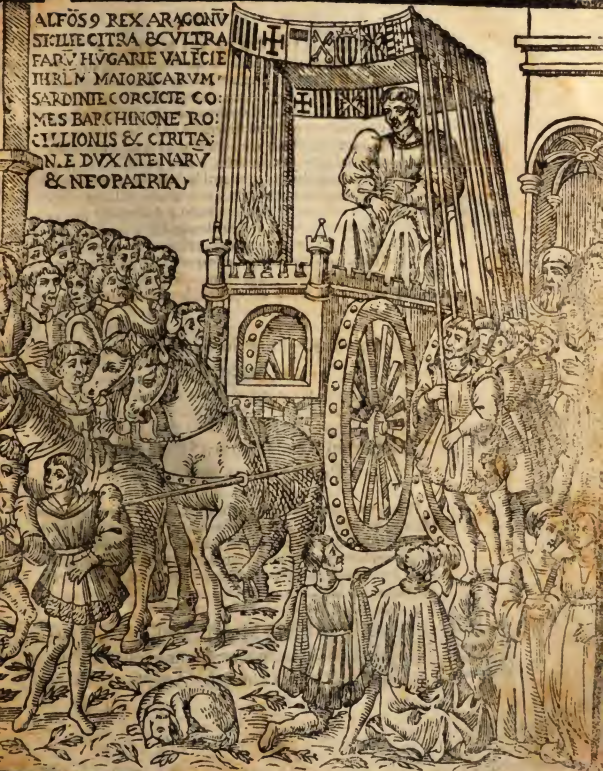 ALFŌS 9 REX ARAGONV̄
SICILIE CITRA & VLTRA
FARV̄ HVGARIE VALĒCIE
IHRLM MAIORICARVM
SARDINIE CORCICIE CO:
MES BARCHINONE RO:
CILLIONIS & CIRITA:
N.E DVX ATENARV
& NEOPATRIA